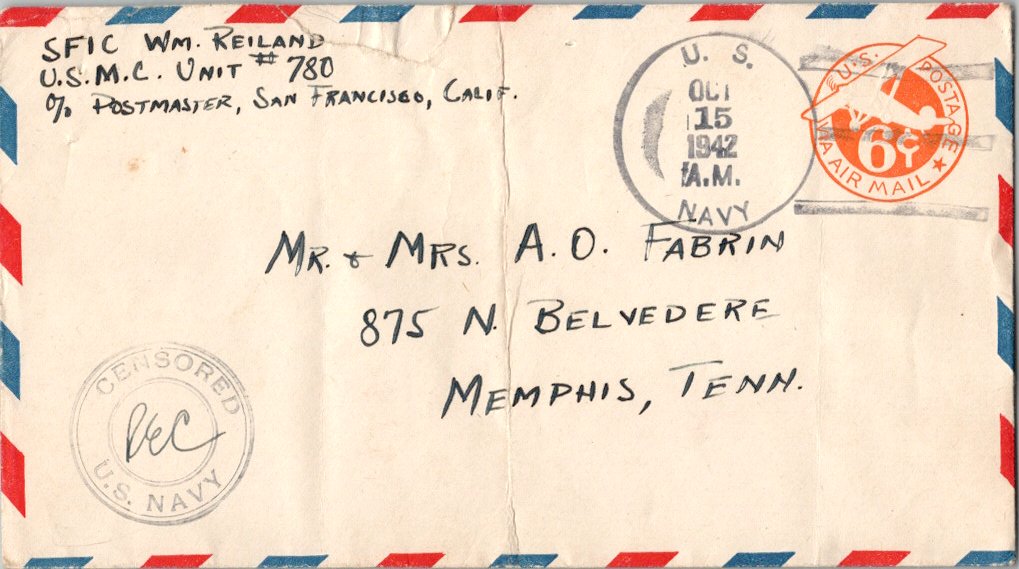 SFIC WM. REILAND
U.S.M.C. UNIT # 780
c/o POSTMASTER, SAN FRANCISCO, CALIF.
U. S.
OCT
15
1942
A.M.
NAVY
U.S. POSTAGE
6¢
VIA AIR MAIL
MR. & MRS. A. O. FABRIN
875 N. BELVEDERE
MEMPHIS, TENN.
CENSORED
U.S. NAVY